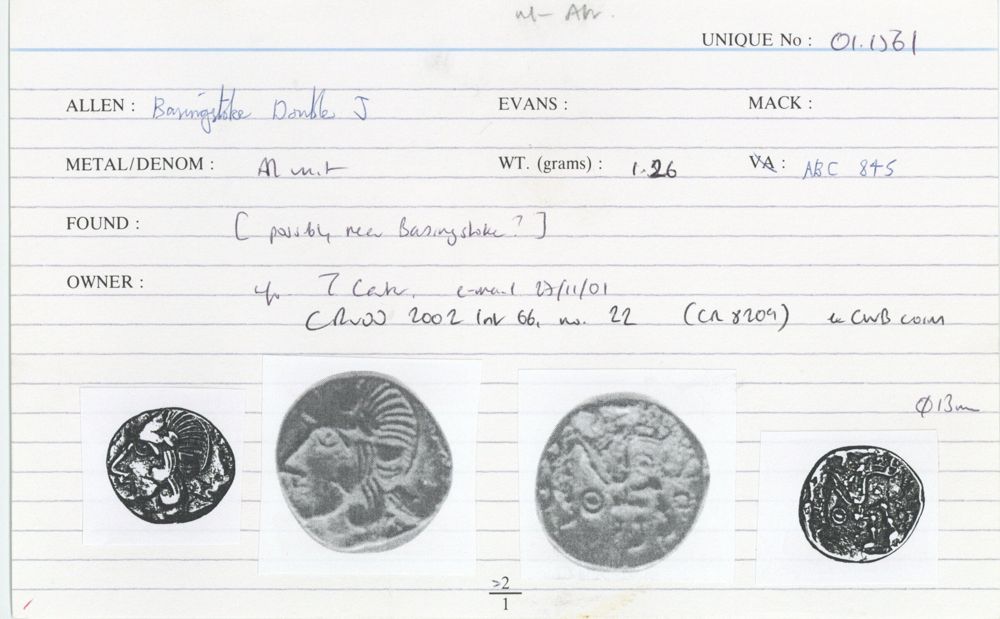 UNIQUE No : 01.1561
ALLEN : Basingstoke Double J EVANS : MACK :
METAL/DENOM : AR unit WT. (grams) : 1.26 VA : ABC 845
FOUND : [possibly near Basingstoke?]
OWNER : e-mail 27/11/01
2002 66, no. 22 (CR 8209) ex CNB coins
Ø13mm
>2
1